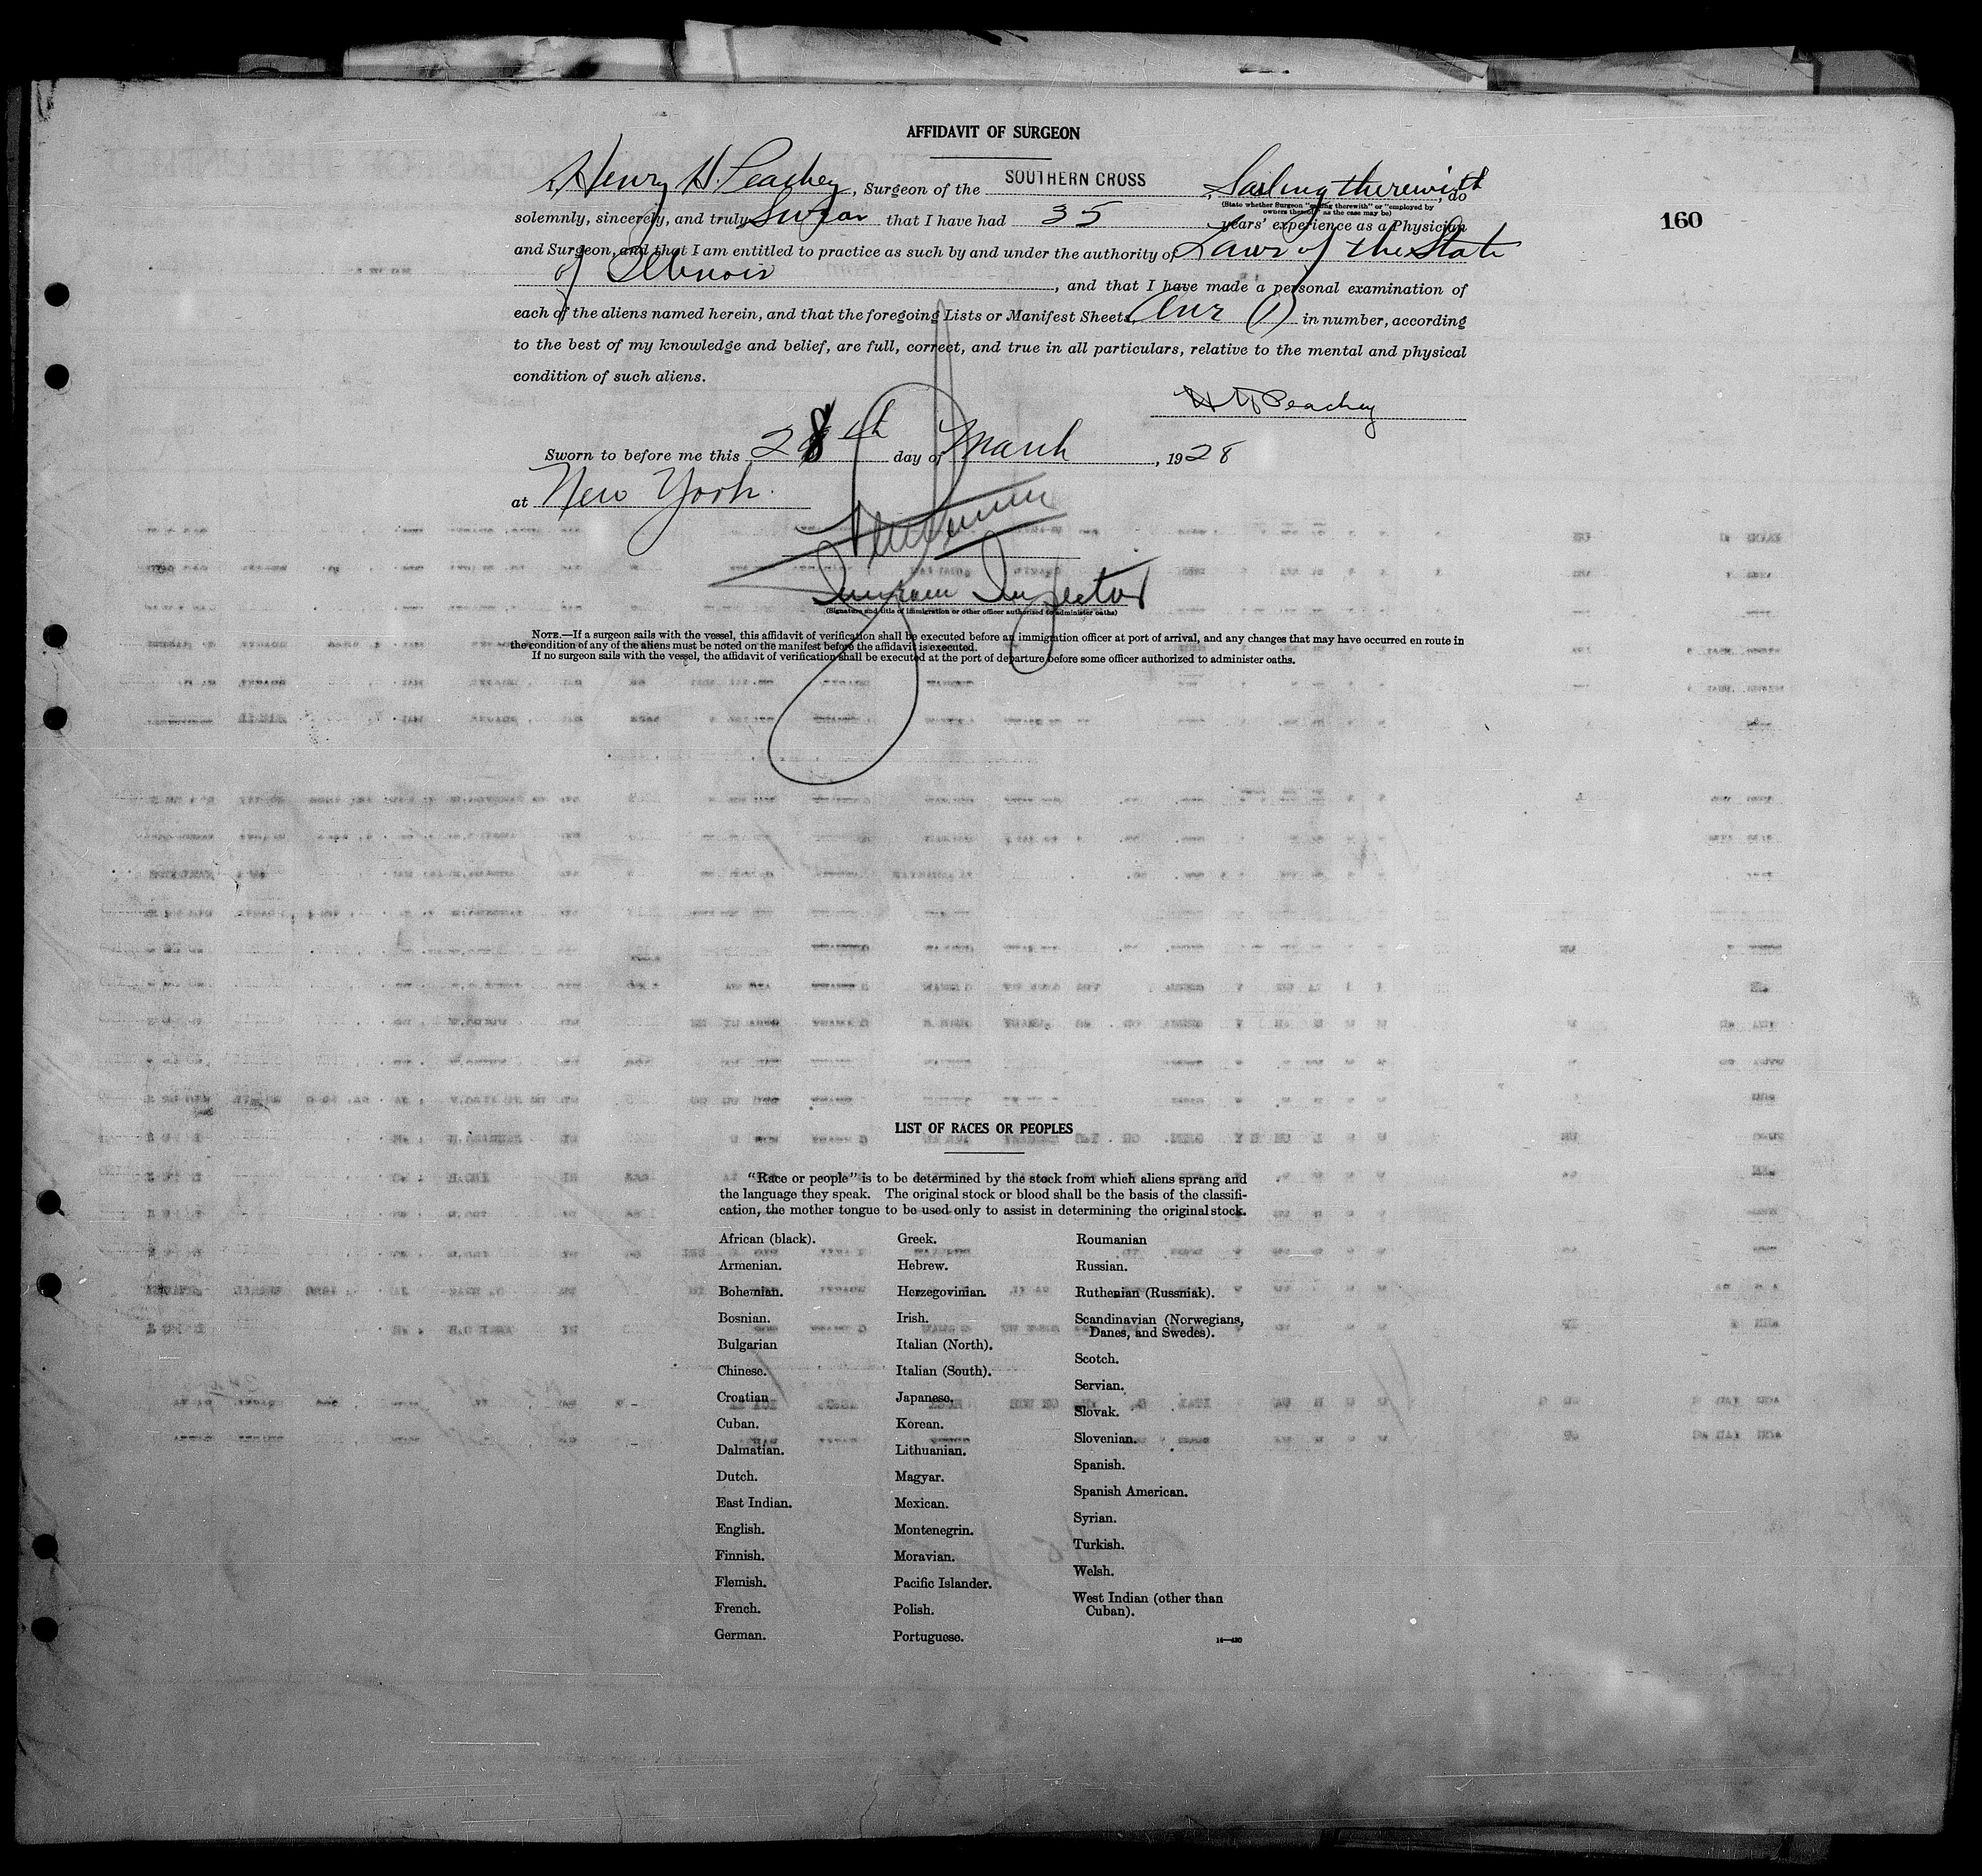 AFFIDAVIT OF SURGEON
I, Henry H. Peachey, Surgeon of the SOUTHERN CROSS, Sailing therewith, do
(State whether Surgeon "sailing therewith" or "employed by
owners thereof," as the case may be)
solemnly, sincerely, and truly swear that I have had 35 years' experience as a Physician
160
and Surgeon, and that I am entitled to practice as such by and under the authority of Laws of the State
of Illinois, and that I have made a personal examination of
each of the aliens named herein, and that the foregoing Lists or Manifest Sheets, One (1) in number, according
to the best of my knowledge and belief, are full, correct, and true in all particulars, relative to the mental and physical
condition of such aliens.
H H Peachey
Sworn to before me this 28th day of March, 1928
at New York.
Inspector
(Signature and title of immigration or other officer authorized to administer oaths)
NOTE.—If a surgeon sails with the vessel, this affidavit of verification shall be executed before an immigration officer at port of arrival, and any changes that may have occurred en route in
the condition of any of the aliens must be noted on the manifest before the affidavit is executed.
If no surgeon sails with the vessel, the affidavit of verification shall be executed at the port of departure before some officer authorized to administer oaths.
LIST OF RACES OR PEOPLES
"Race or people" is to be determined by the stock from which aliens sprang and
the language they speak. The original stock or blood shall be the basis of the classifi-
cation, the mother tongue to be used only to assist in determining the original stock.
African (black).
Armenian.
Bohemian.
Bosnian.
Bulgarian
Chinese.
Croatian
Cuban.
Dalmatian.
Dutch.
East Indian.
English.
Finnish.
Flemish.
French.
German.
Greek.
Hebrew.
Herzegovinian.
Irish.
Italian (North).
Italian (South).
Japanese.
Korean.
Lithuanian.
Magyar.
Mexican.
Montenegrin.
Moravian.
Pacific Islander.
Polish.
Portuguese.
Roumanian
Russian.
Ruthenian (Russniak).
Scandinavian (Norwegians,
Danes, and Swedes).
Scotch.
Servian.
Slovak.
Slovenian.
Spanish.
Spanish American.
Syrian.
Turkish.
Welsh.
West Indian (other than
Cuban).
14—430